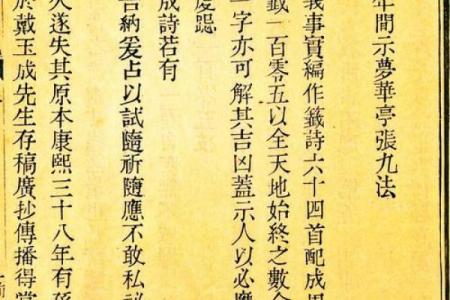 年間示夢華亭張九法
義事實編作籤詩六十四首配成周
籤一百零五以全天地始終之數
一字亦可解其吉凶蓋示人以必應
度認
成詩若有
吉納爰占以試隨祈隨應不敢私祕
久遂失其原本康熙三十八年有孫
於戴玉成先生存稿廣抄傳播得